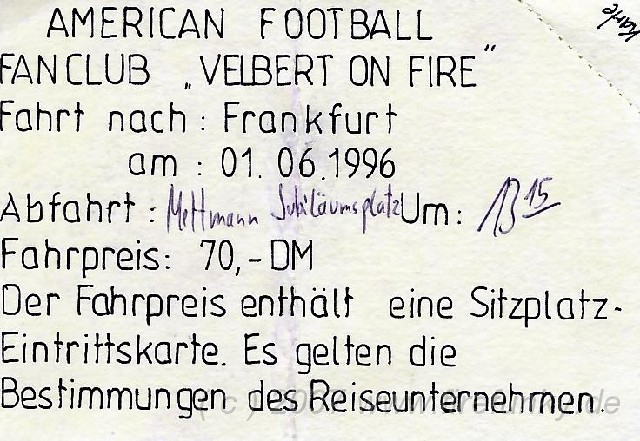 Karte
AMERICAN FOOTBALL
FANCLUB „VELBERT ON FIRE"
Fahrt nach: Frankfurt
am: 01.06.1996
Abfahrt: Mettmann Jubiläumsplatz Um: 13 15
Fahrpreis: 70,-DM
Der Fahrpreis enthält eine Sitzplatz-
Eintrittskarte. Es gelten die
Bestimmungen des Reiseunternehmen.